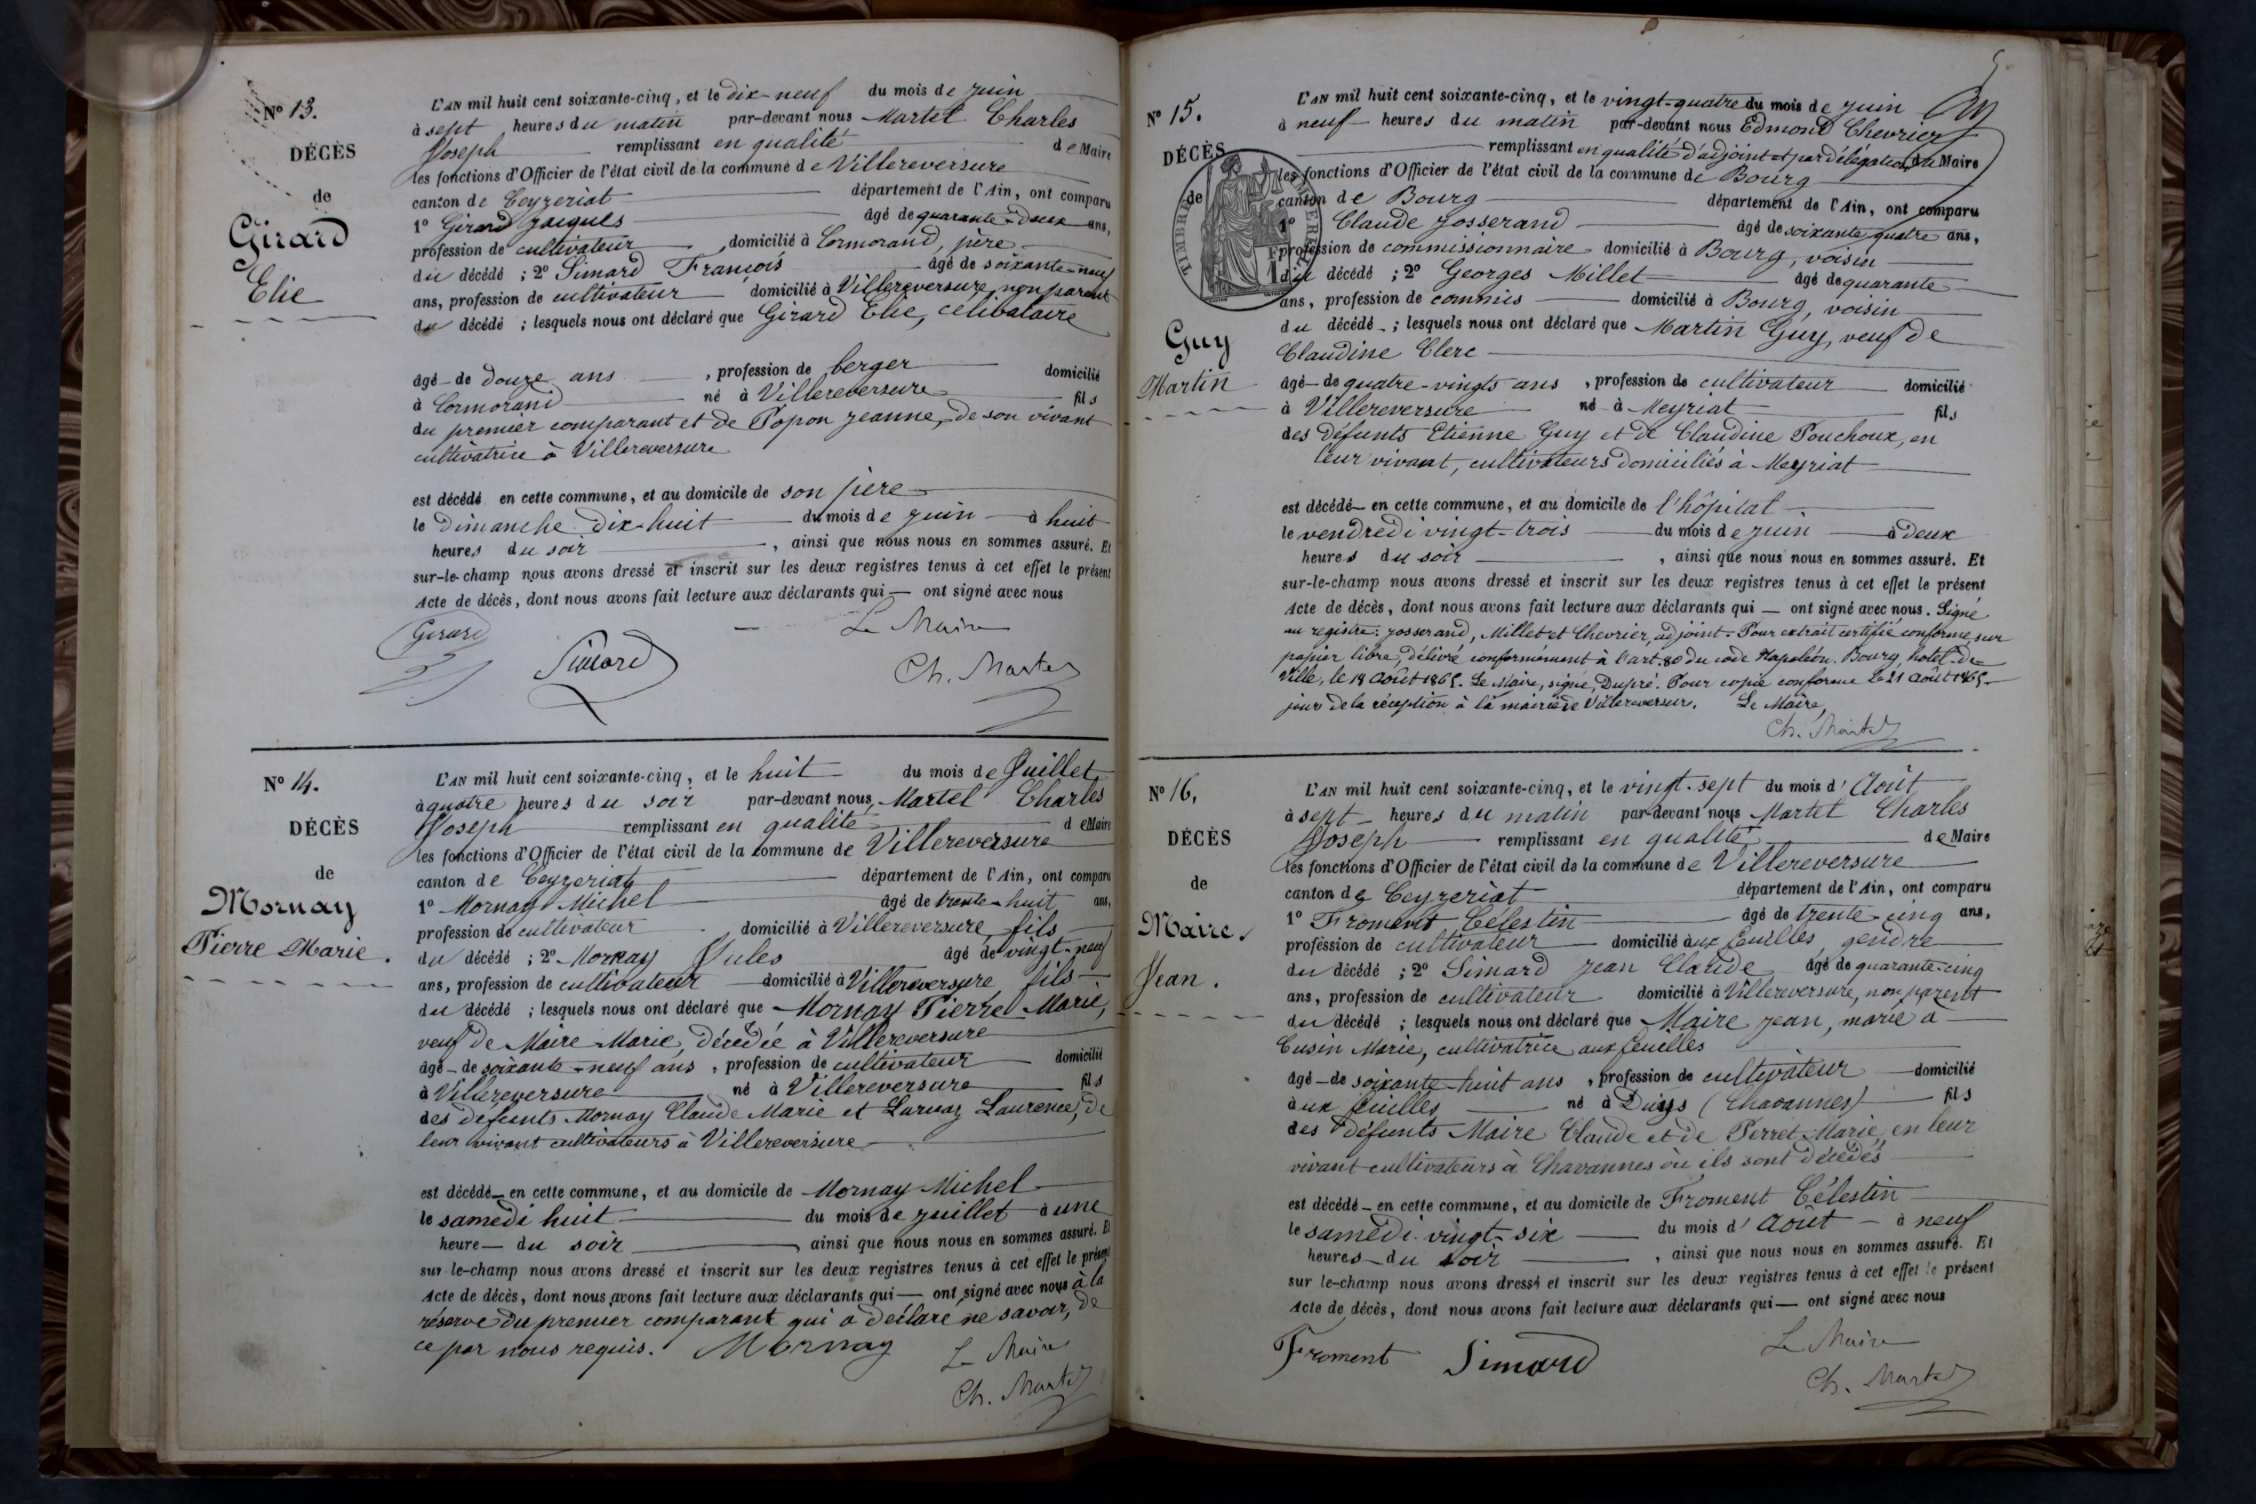 N° 13.
DÉCÈS
de
Girard
Elie
L'AN mil huit cent soixante-cinq, et le dix-neuf du mois de juin
à sept heures du matin par-devant nous Martel Charles
Joseph remplissant en qualité de Maire
les fonctions d'Officier de l'état civil de la commune de Villereversure
canton de Ceyzeriat département de l'Ain, ont comparu
1° Girard Jacques âgé de quarante-deux ans,
profession de cultivateur, domicilié à Cormorand, père
du décédé ; 2° Simard François âgé de soixante-neuf
ans, profession de cultivateur domicilié à Villereversure, non parent
du décédé ; lesquels nous ont déclaré que Girard Elie, célibataire
âgé de douze ans, profession de berger domicilié
à Cormorand né à Villereversure fils
du premier comparant et de Popon Jeanne, de son vivant
cultivatrice à Villereversure
est décédé en cette commune, et au domicile de son père
le Dimanche dix-huit du mois de juin à huit
heures du soir, ainsi que nous nous en sommes assuré. Et
sur-le-champ nous avons dressé et inscrit sur les deux registres tenus à cet effet le présent
Acte de décès, dont nous avons fait lecture aux déclarants qui — ont signé avec nous
Girard Simard Le Maire
Ch. Martel
N° 14.
DÉCÈS
de
Mornay
Pierre Marie.
L'AN mil huit cent soixante-cinq, et le huit du mois de Juillet
à quatre heures du soir par-devant nous, Martel Charles
Joseph remplissant en qualité de Maire
les fonctions d'Officier de l'état civil de la commune de Villereversure
canton de Ceyzeriat département de l'Ain, ont comparu
1° Mornay Michel âgé de trente-huit ans,
profession de cultivateur domicilié à Villereversure, fils
du décédé ; 2° Mornay Jules âgé de vingt-neuf
ans, profession de cultivateur domicilié à Villereversure fils
du décédé ; lesquels nous ont déclaré que Mornay Pierre Marie,
veuf de Maire Marie, décédée à Villereversure
âgé de soixante-neuf ans, profession de cultivateur domicilié
à Villereversure né à Villereversure fils
des défunts Mornay Claude Marie et Laurence, de
leur vivant cultivateurs à Villereversure
est décédé en cette commune, et au domicile de Mornay Michel
le samedi huit du mois de juillet à une
heure du soir, ainsi que nous nous en sommes assuré. Et
sur le-champ nous avons dressé et inscrit sur les deux registres tenus à cet effet le présent
Acte de décès, dont nous avons fait lecture aux déclarants qui — ont signé avec nous à la
réserve du premier comparant qui a déclaré ne savoir, de
ce par nous requis. Mornay Le Maire
Ch. Martel
5
N° 15.
DÉCÈS
de
Guy
Martin
L'AN mil huit cent soixante-cinq, et le vingt-quatre du mois de juin
à neuf heures du matin par-devant nous Edmond Chevrier
remplissant en qualité d'adjoint et par délégation du Maire
les fonctions d'Officier de l'état civil de la commune de Bourg
canton de Bourg département de l'Ain, ont comparu
1° Claude Josserand âgé de soixante quatre ans,
profession de commissionnaire domicilié à Bourg, voisin
du décédé ; 2° Georges Millet âgé de quarante
ans, profession de commis domicilié à Bourg, voisin
du décédé ; lesquels nous ont déclaré que Martin Guy, veuf de
Claudine Clerc
âgé de quatre-vingts ans, profession de cultivateur domicilié
à Villereversure né à Meyriat fils
des défunts Etienne Guy et de Claudine Pouchoux, en
leur vivant, cultivateurs domiciliés à Meyriat
est décédé en cette commune, et au domicile de l'hôpital
le vendredi vingt-trois du mois de juin à deux
heures du soir, ainsi que nous nous en sommes assuré. Et
sur-le-champ nous avons dressé et inscrit sur les deux registres tenus à cet effet le présent
Acte de décès, dont nous avons fait lecture aux déclarants qui — ont signé avec nous. Signé
au registre: Josserand, Millet et Chevrier, adjoint. Pour extrait certifié conforme, sur
papier libre, délivré conformément à l'art. 80 du code Napoléon. Bourg, hôtel-de-
Ville, le 18 Août 1865. Le Maire, signé, Dupré. Pour copie conforme le 21 Août 1865
jour de la réception à la mairie de Villereversure. Le Maire,
Ch. Martel
N° 16,
DÉCÈS
de
Maire,
Jean.
L'AN mil huit cent soixante-cinq, et le vingt-sept du mois d'Août
à sept heures du matin par-devant nous Martel Charles
Joseph remplissant en qualité de Maire
les fonctions d'Officier de l'état civil de la commune de Villereversure
canton de Ceyzeriat département de l'Ain, ont comparu
1° Froment Célestin âgé de trente-cinq ans,
profession de cultivateur domicilié aux feuilles, gendre
du décédé ; 2° Simard Jean Claude âgé de quarante-cinq
ans, profession de cultivateur domicilié à Villereversure, non parent
du décédé ; lesquels nous ont déclaré que Maire Jean, marié à
Cusin Marie, cultivatrice aux feuilles
âgé de soixante-huit ans, profession de cultivateur domicilié
aux feuilles né à (Chavannes) fils
des défunts Maire Claude et de Perret Marie, en leur
vivant cultivateurs à Chavannes où ils sont décédés
est décédé en cette commune, et au domicile de Froment Célestin
le samedi vingt-six du mois d'Août à neuf
heures du soir, ainsi que nous nous en sommes assuré. Et
sur le-champ nous avons dressé et inscrit sur les deux registres tenus à cet effet le présent
Acte de décès, dont nous avons fait lecture aux déclarants qui — ont signé avec nous
Froment Simard Le Maire
Ch. Martel